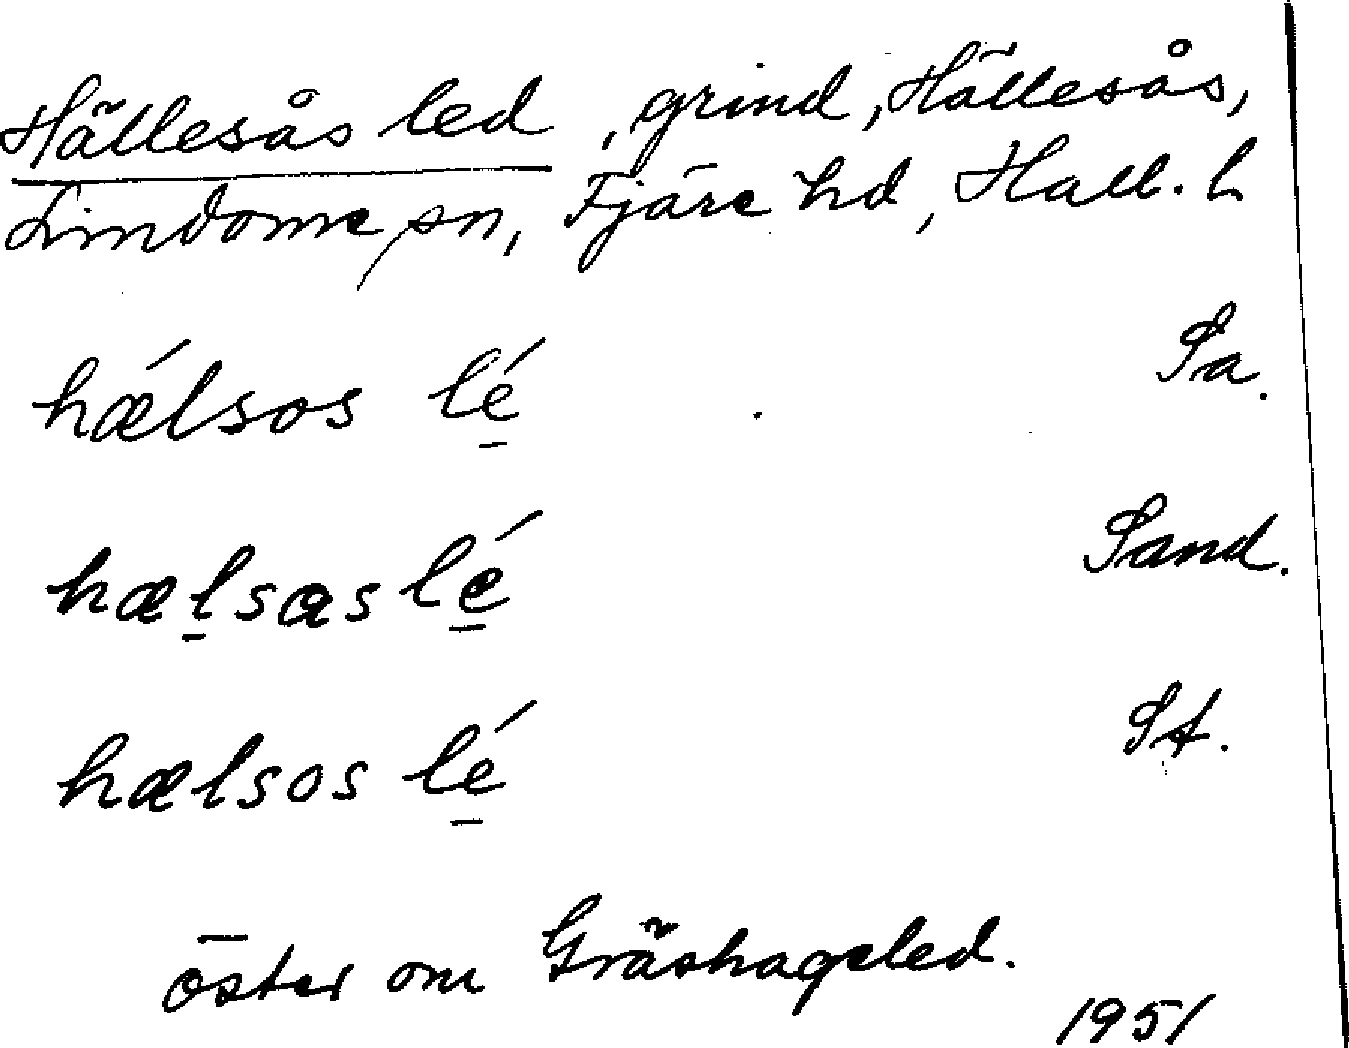 Hällesås led, grind, Hällesås,
Lindome sn, Fjäre hd, Hall. l.
hǽlsos lé̱ Sa.
hæḻsɑs lé̱ Sand.
hælsos lé̱ St.
öster om Gräshageled.
1951